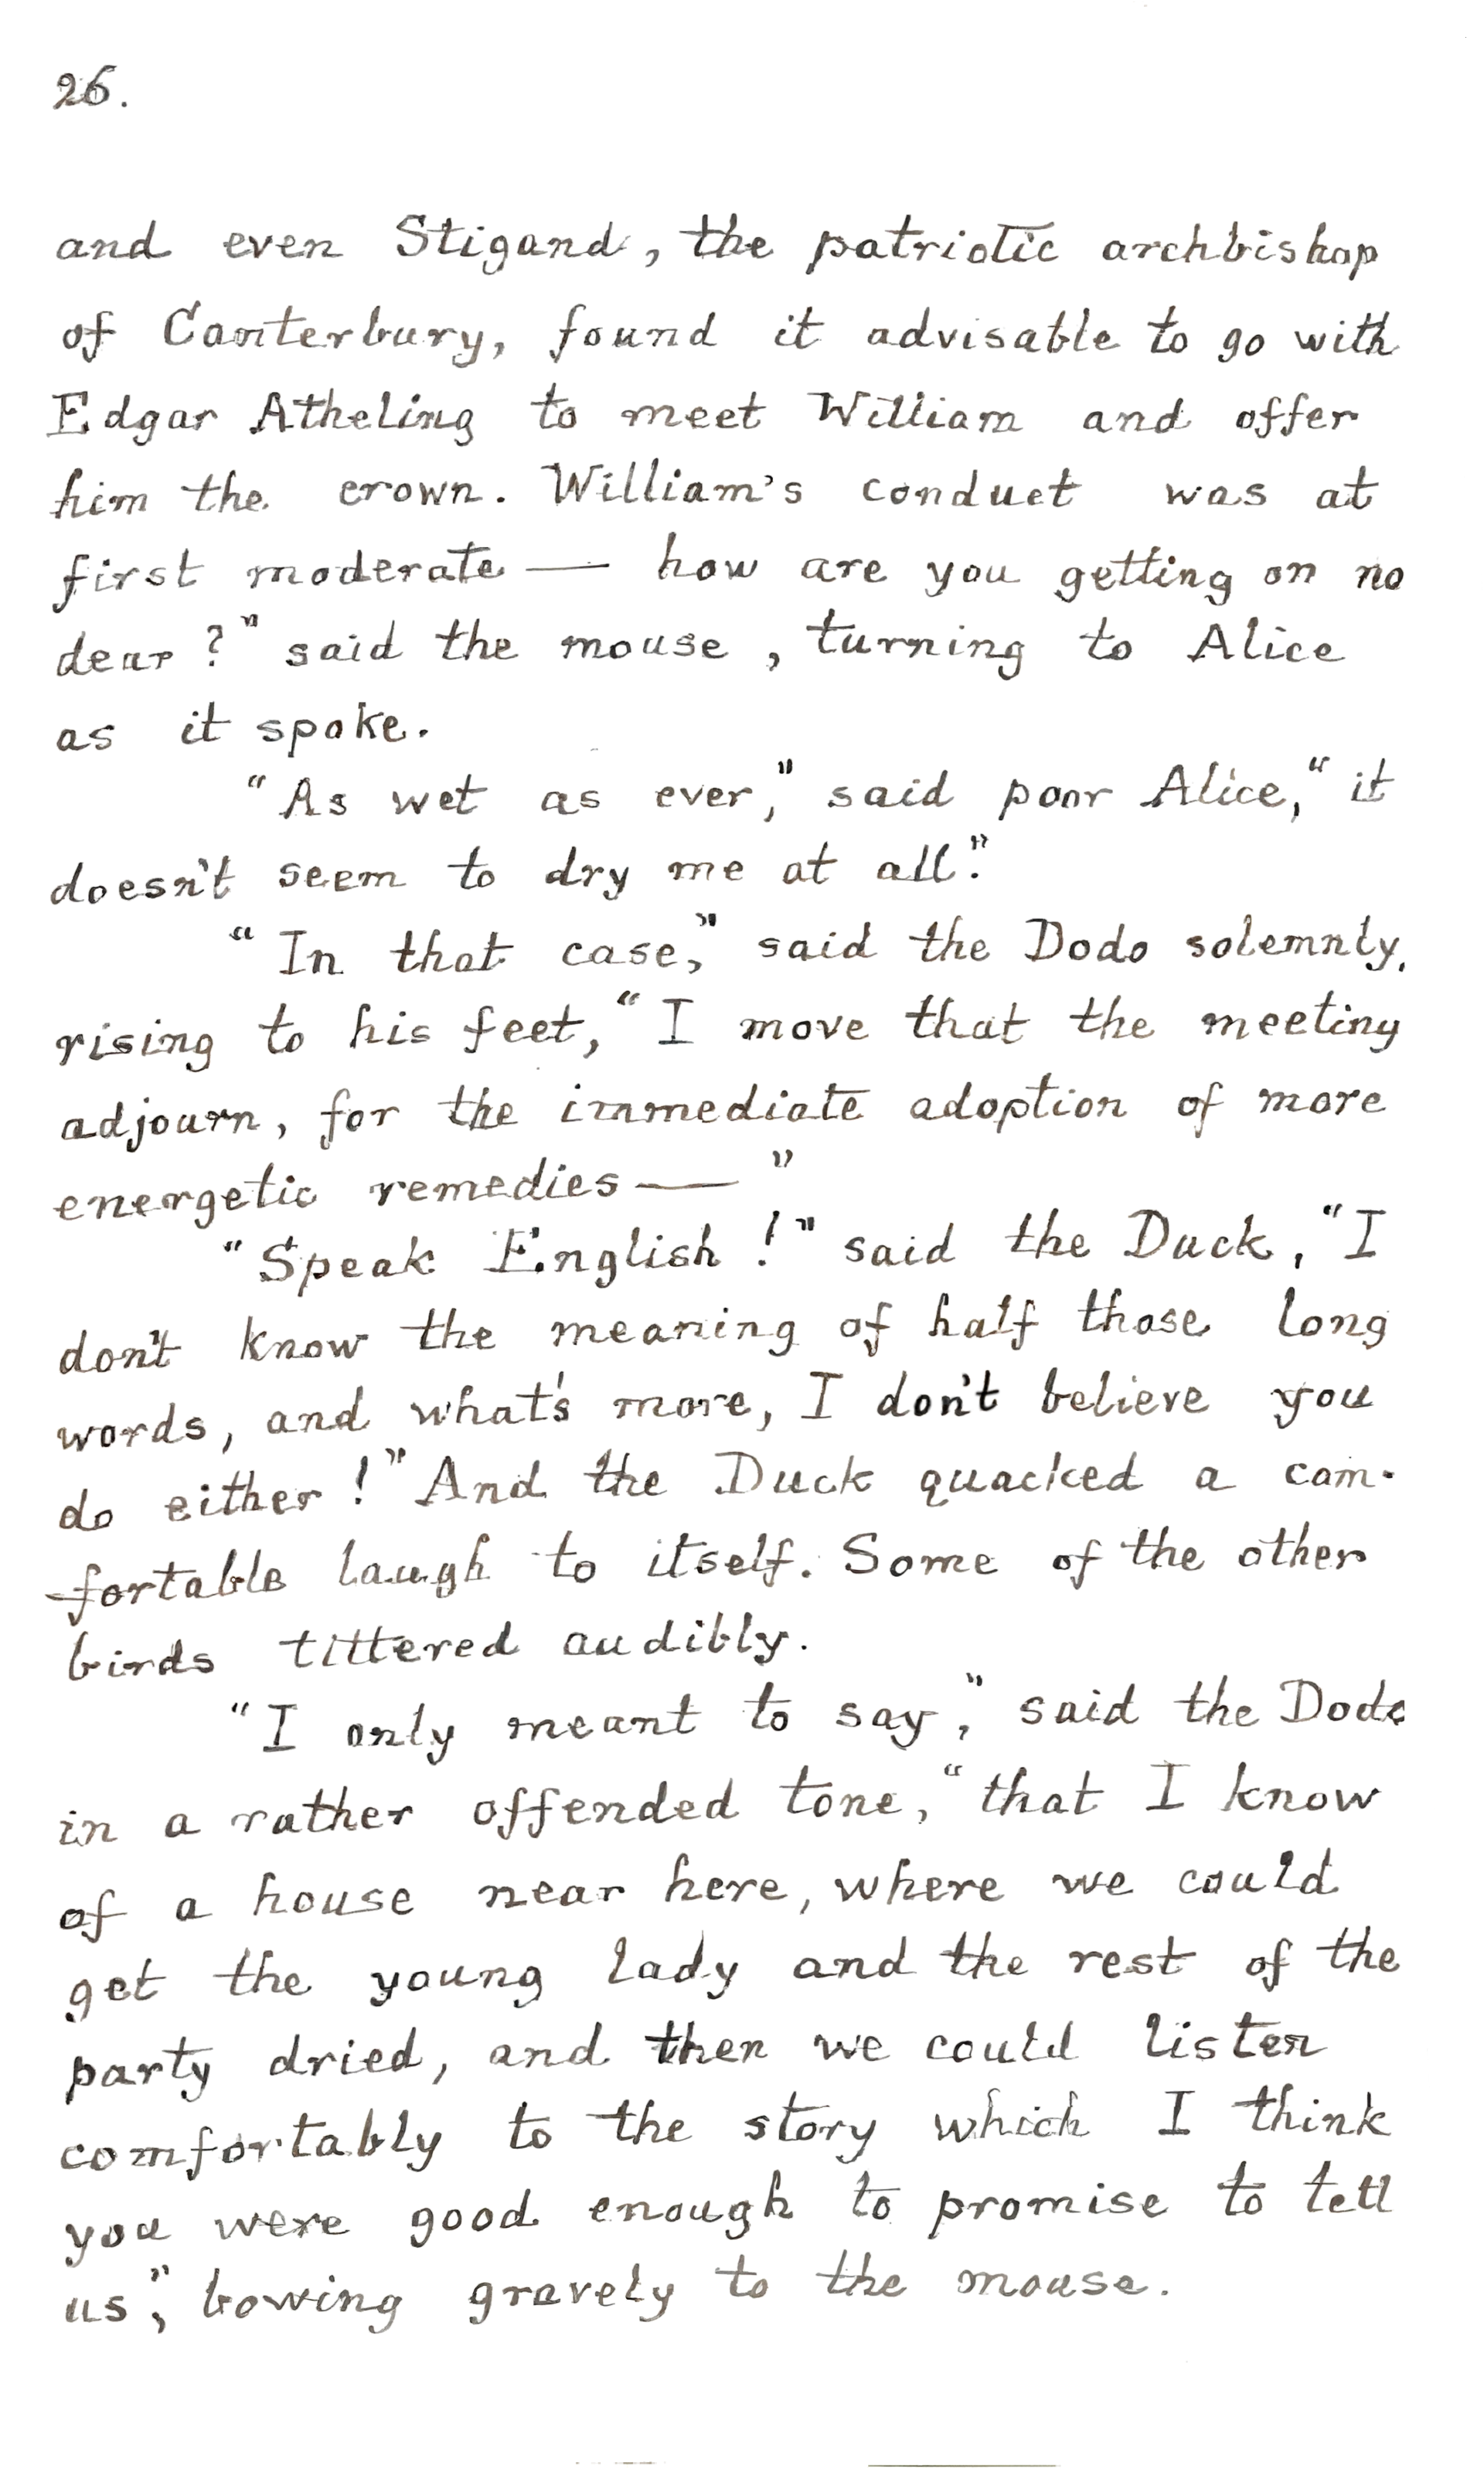 26.
and even Stigand, the patriotic archbishop
of Canterbury, found it advisable to go with
Edgar Atheling to meet William and offer
him the crown. William's conduct was at
first moderate — how are you getting on no
dear?" said the mouse, turning to Alice
as it spoke.
"As wet as ever," said poor Alice, "it
doesn't seem to dry me at all."
"In that case," said the Dodo solemnly,
rising to his feet, "I move that the meeting
adjourn, for the immediate adoption of more
energetic remedies — "
"Speak English!" said the Duck, "I
don't know the meaning of half those long
words, and what's more, I don't believe you
do either!" And the Duck quacked a com-
-fortable laugh to itself. Some of the other
birds tittered audibly.
"I only meant to say," said the Dodo
in a rather offended tone, "that I know
of a house near here, where we could
get the young lady and the rest of the
party dried, and then we could listen
comfortably to the story which I think
you were good enough to promise to tell
us," bowing gravely to the mouse.